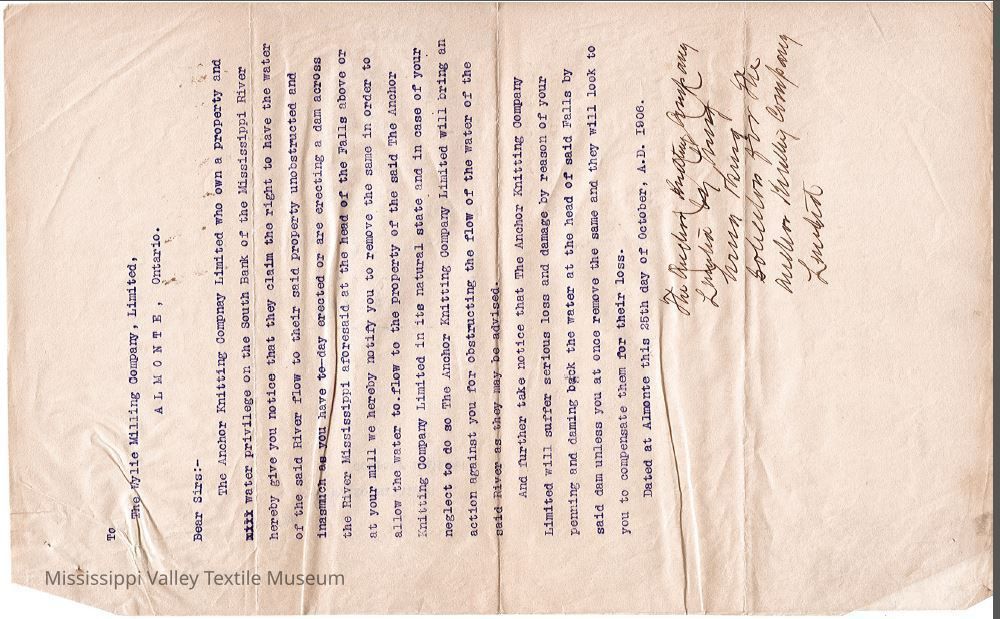 To
The Wylie Milling Company, Limited,
A L M O N T E, Ontario.
Dear Sirs:-
The Anchor Knitting Compnay Limited who own a property and
water privilege on the South Bank of the Mississippi River
hereby give you notice that they claim the right to have the water
of the said River flow to their said property unobstructed and
inasmuch as you have to-day erected or are erecting a dam across
the River Mississippi aforesaid at the head of the Falls above or
at your mill we hereby notify you to remove the same in order to
allow the water to.flow to the property of the said The Anchor
Knitting Company Limited in its natural state and in case of your
neglect to do so The Anchor Knitting Company Limited will bring an
action against you for obstructing the flow of the water of the
said River as they may be advised.
And further take notice that The Anchor Knitting Company
Limited will suffer serious loss and damage by reason of your
penning and daming back the water at the head of said Falls by
said dam unless you at once remove the same and they will look to
you to compensate them for their loss.
Dated at Almonte this 25th day of October, A.D. 1906.
The Anchor Knitting Company
Limited by
Solicitors for The
Anchor Knitting Company
Limited
Mississippi Valley Textile Museum